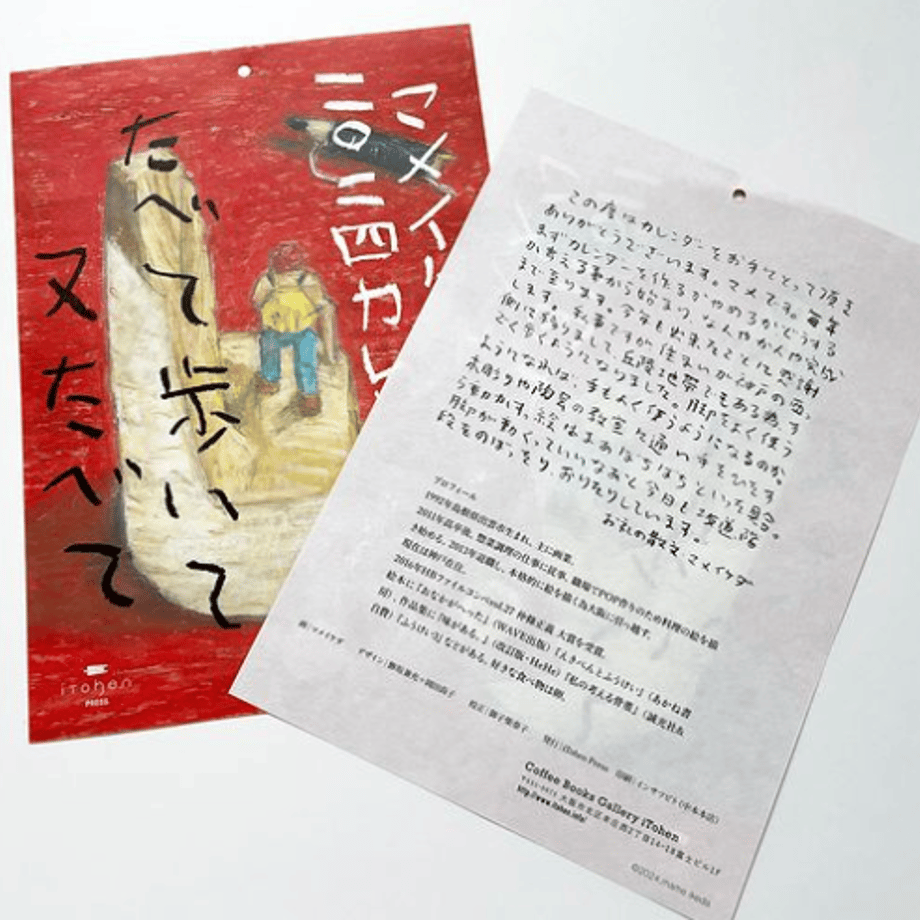 マメイ
二〇二四カレ
たべて歩いて
又たべて
iTohen
PRESS
この度はカレンダーをお手にとって頂き
ありがとうございます。マメです。毎年
まずカレンダーを作るかやめるかどうする
か考える事から始まり なんやかんや完成
まで至ります。今年も出来たことに感謝
します。私事ですが住まいが神戸の西
側に移りまして丘陵地帯でもある為、す
ごく歩くようになりました。脚をよく使う
ようになれば、手もよく使うようになるのか、
木彫りや陶芸の教室に通い手をひたす
ら動かす。絵はまあぼちぼちといった具合。
脚が動くっていいなあと今日も坂道、階
段をのぼったりおりたりしています。
お礼の散文 マメイケダ
プロフィール
1992年島根県出雲市生まれ、主に画業。
2011年高卒後、惣菜調理の仕事に従事、職場でPOP作りのため料理の絵を描
き始める。2013年退職し、本格的に絵を描く為大阪に引っ越す。
現在は神戸在住。
2016年HBファイルコンペvol.27 仲條正義 大賞を受賞。
絵本に『おなかがへった』(WAVE出版)『えきべんとふうけい』(あかね書
房)、作品集に『味がある。』(改訂版・HeHe)『私の考える惣菜』(誠光社&
自費)『ふうけい3』などがある。好きな食べ物は卵。
画|マメイケダ
デザイン|
校正|
発行|iTohen Press
印刷|インサツビト(中本本店)
Coffee Books Gallery iTohen
大阪市北区本庄西2丁目14-18富士ビル1F
http://www.itohen.info/
©2024.mame ikeda